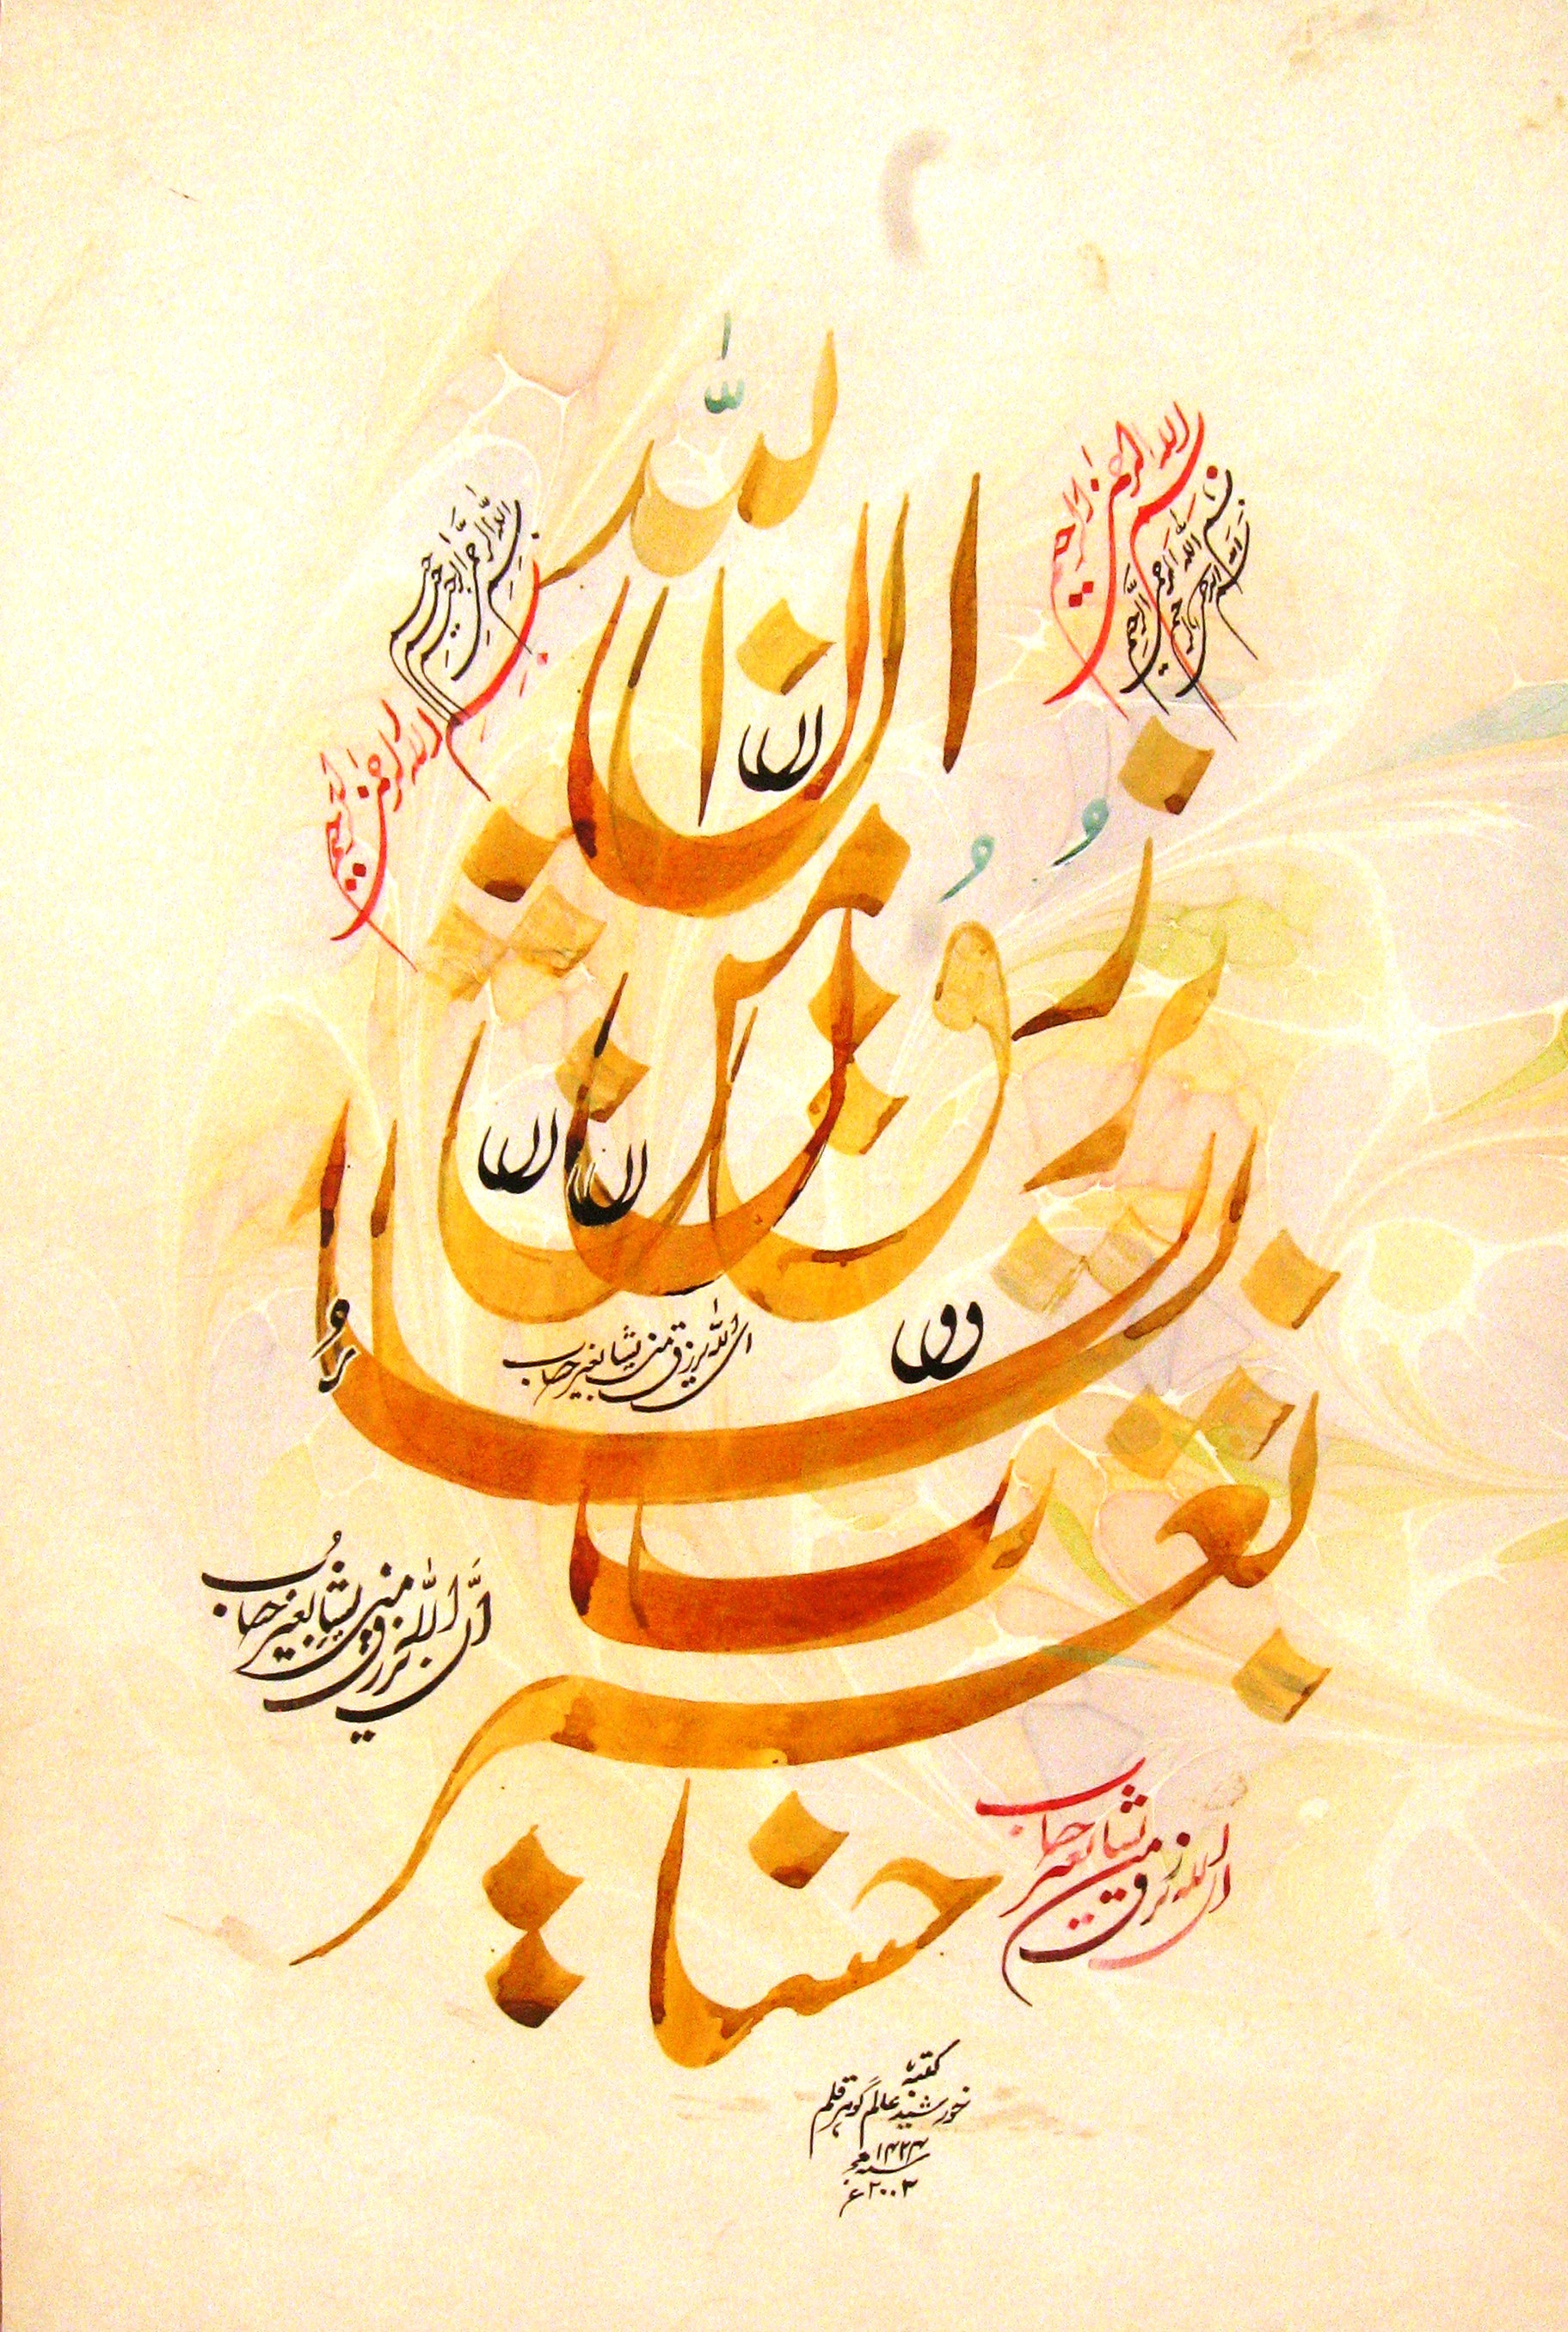 ان الله يرزق من يشا بغير حساب
بسم الله الرحمن الرحيم
بسم الله الرحمن الرحيم
بسم الله الرحمن الرحيم
بسم الله الرحمن الرحيم
ان الله يرزق من يشا بغير حساب
انَّ الله يرزق من يشا بغير حسابُ
ان الله يرزق من يشا بغير حساب
كتبہ
خورشید عالم گوہر قلم
۱۴۲۴
سنہ ھجر
۲۰۰۳ء